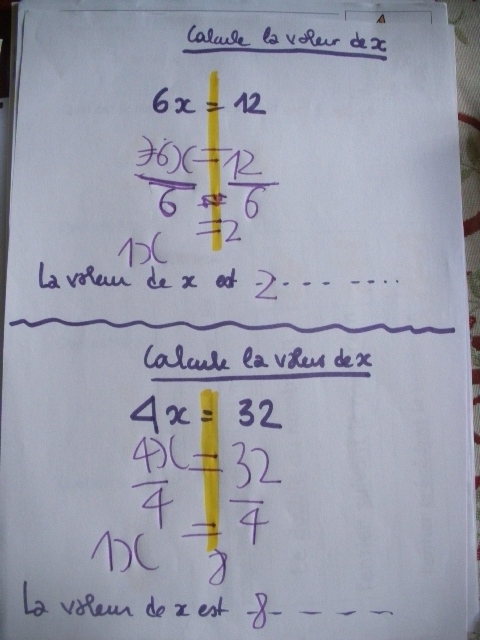 Calcule la valeur de x
6x = 12
6x = 12
6 6
1x = 2
La valeur de x est 2
Calcule la valeur de x
4x = 32
4x = 32
4 4
1x = 8
La valeur de x est 8